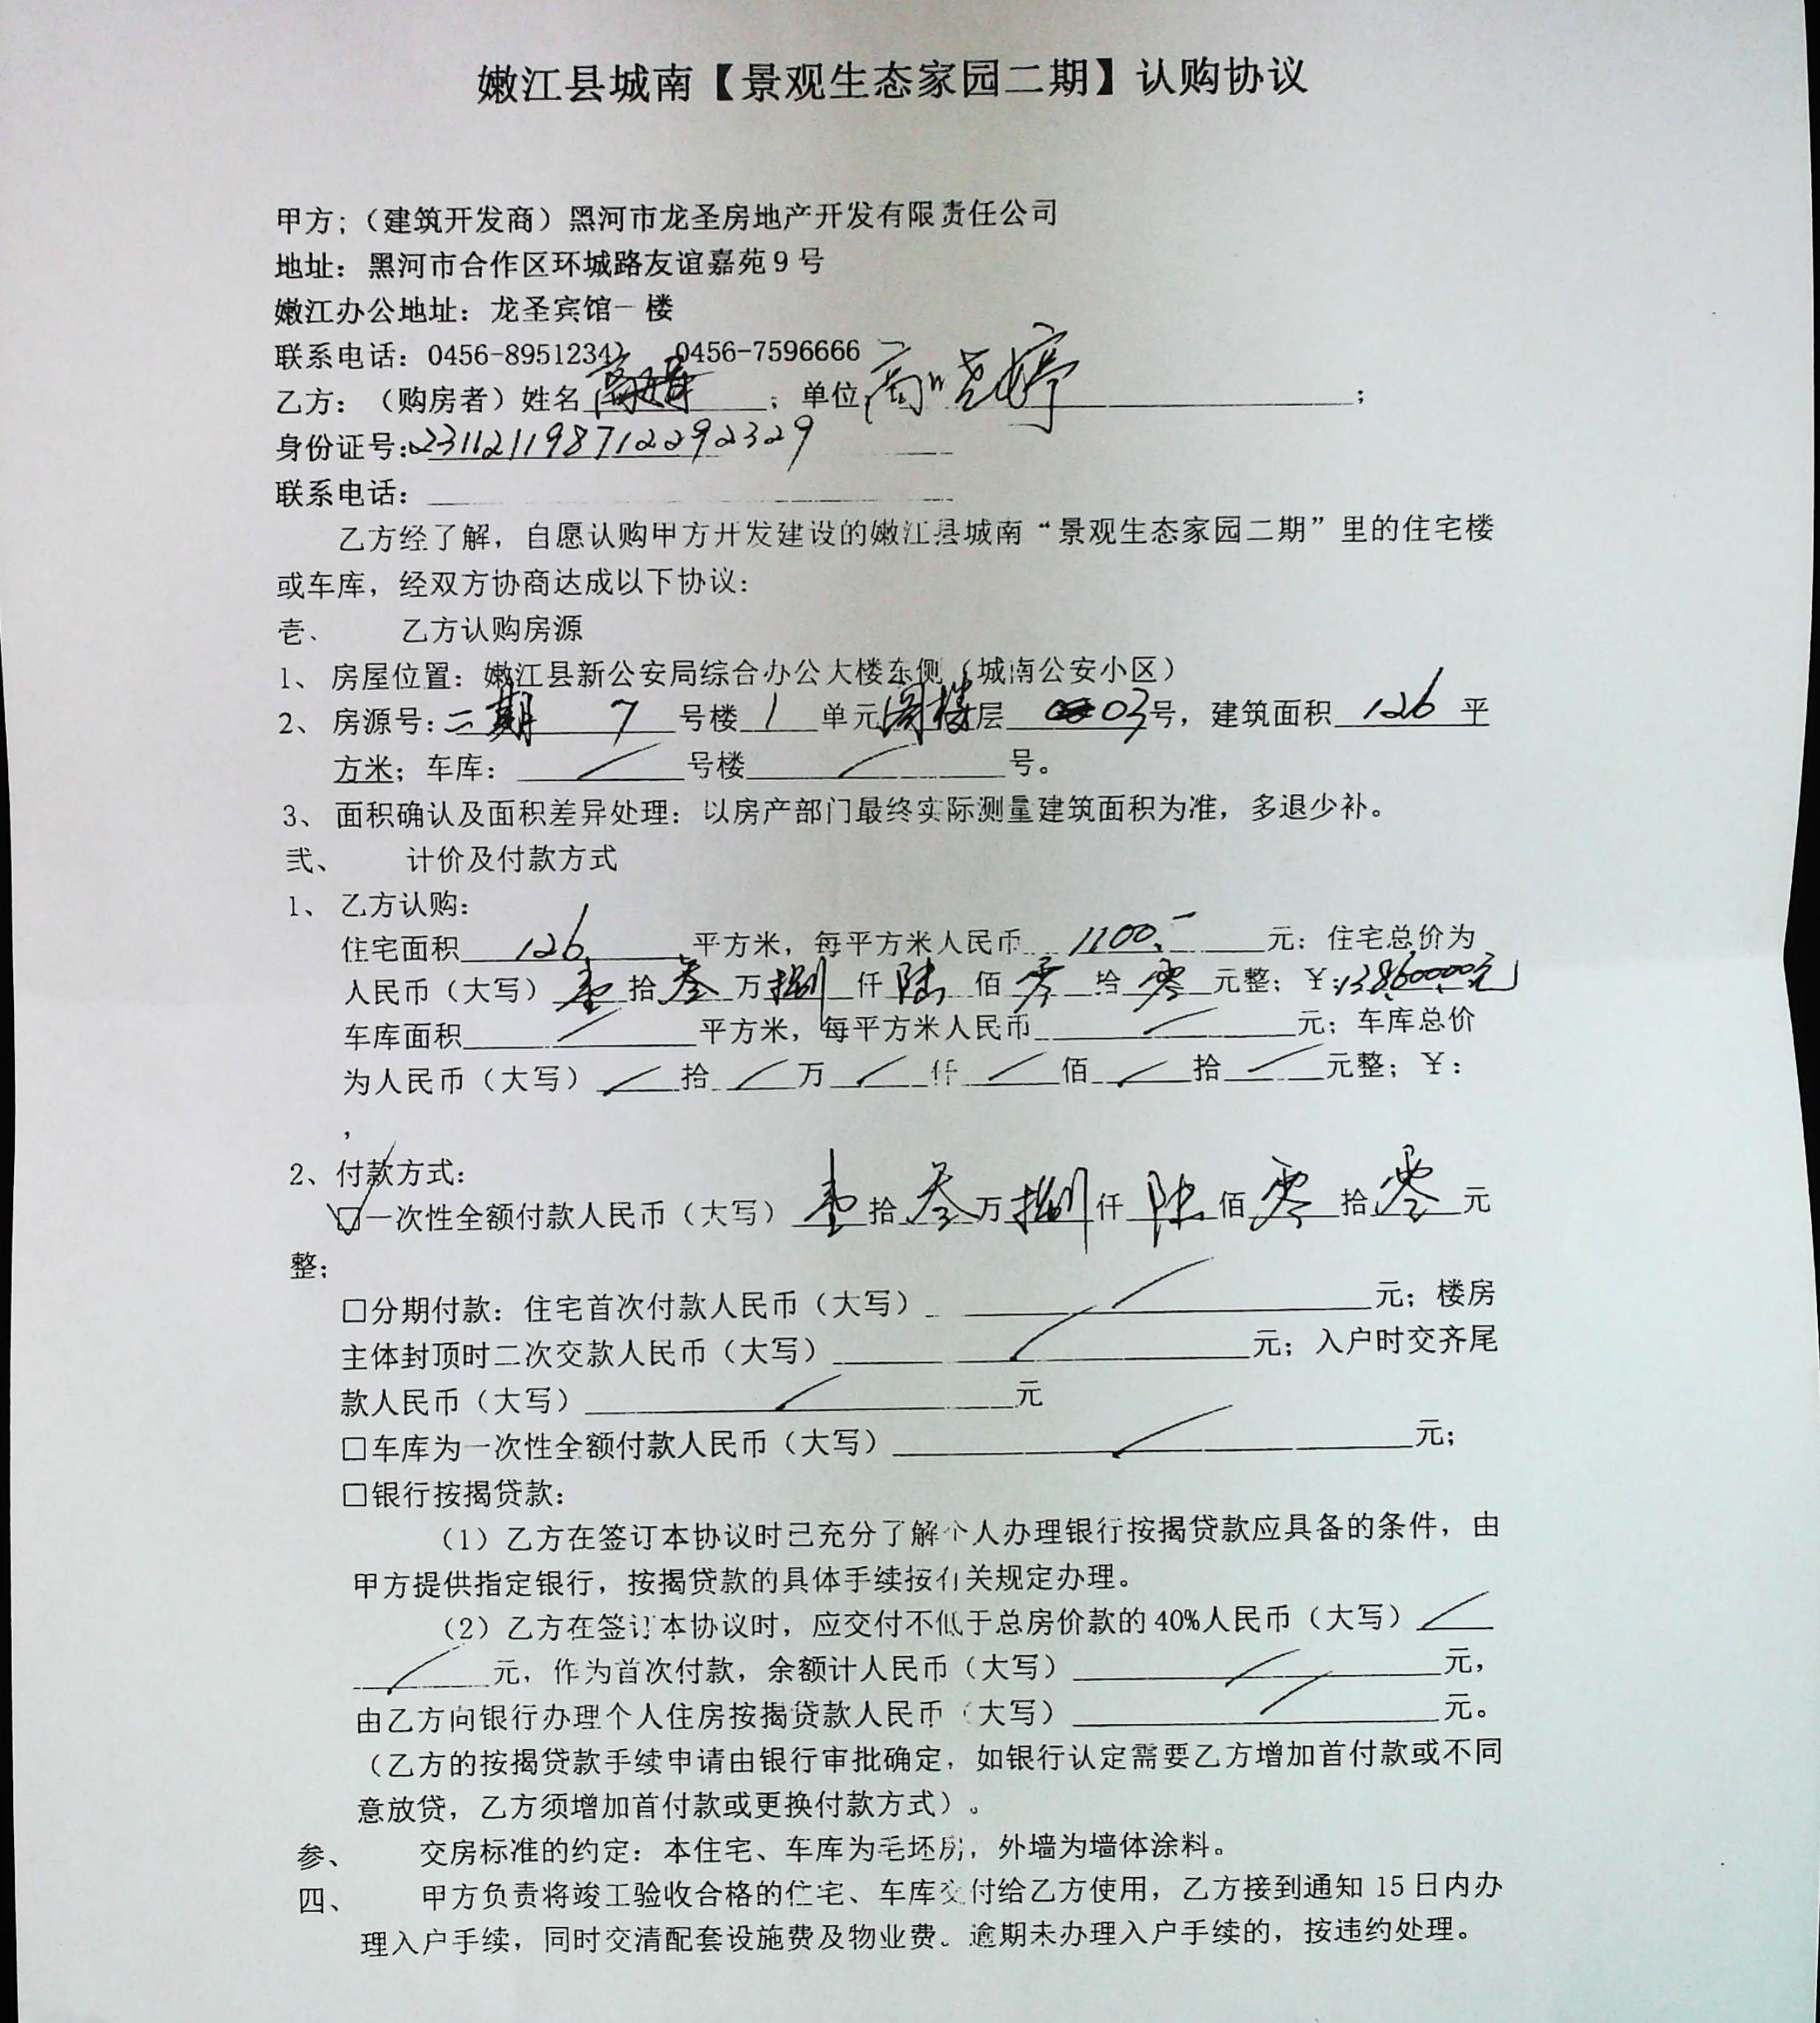 嫩江县城南【景观生态家园二期】认购协议
甲方;（建筑开发商）黑河市龙圣房地产开发有限责任公司
地址：黑河市合作区环城路友谊嘉苑9号
嫩江办公地址：龙圣宾馆一楼
联系电话：0456-8951234、 0456-7596666
乙方：（购房者）姓名______；单位 高晓婷______；
身份证号:231121198712292329
联系电话：______
乙方经了解，自愿认购甲方开发建设的嫩江县城南“景观生态家园二期”里的住宅楼
或车库，经双方协商达成以下协议：
壱、 乙方认购房源
1、房屋位置：嫩江县新公安局综合办公大楼东侧（城南公安小区）
2、房源号:二期 7 号楼 1 单元 阁楼 层 03号，建筑面积 126 平
方米；车库： / 号楼 / 号。
3、面积确认及面积差异处理：以房产部门最终实际测量建筑面积为准，多退少补。
弍、 计价及付款方式
1、乙方认购：
住宅面积 126 平方米，每平方米人民币 1100.- 元；住宅总价为
人民币（大写）壹拾叁万捌仟陆佰零拾零元整；￥:138600.00元
车库面积 / 平方米，每平方米人民币 / 元；车库总价
为人民币（大写） / 拾 / 万 / 仟 / 佰 / 拾 / 元整；￥：
，
2、付款方式：
☑一次性全额付款人民币（大写）壹拾叁万捌仟陆佰零拾零元
整；
□分期付款：住宅首次付款人民币（大写） / 元；楼房
主体封顶时二次交款人民币（大写） / 元；入户时交齐尾
款人民币（大写） / 元
□车库为一次性全额付款人民币（大写） / 元；
□银行按揭贷款：
（1）乙方在签订本协议时已充分了解个人办理银行按揭贷款应具备的条件，由
甲方提供指定银行，按揭贷款的具体手续按有关规定办理。
（2）乙方在签订本协议时，应交付不低于总房价款的40%人民币（大写） /
/ 元，作为首次付款，余额计人民币（大写） / 元，
由乙方向银行办理个人住房按揭贷款人民币（大写） / 元。
（乙方的按揭贷款手续申请由银行审批确定，如银行认定需要乙方增加首付款或不同
意放贷，乙方须增加首付款或更换付款方式）。
参、 交房标准的约定：本住宅、车库为毛坯房，外墙为墙体涂料。
四、 甲方负责将竣工验收合格的住宅、车库交付给乙方使用，乙方接到通知15日内办
理入户手续，同时交清配套设施费及物业费。逾期未办理入户手续的，按违约处理。